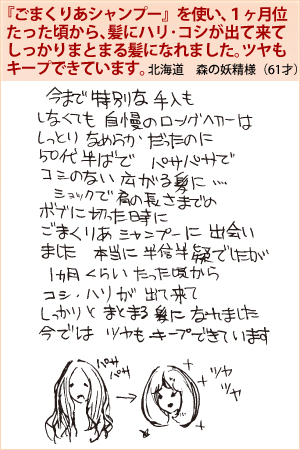 『ごまくりあシャンプー』を使い、1ヶ月位
たった頃から、髪にハリ・コシが出て来て
しっかりまとまる髪になれました。ツヤも
キープできています。北海道 森の妖精様（61才）
今まで特別な手入も
しなくても自慢のロングヘアーは
しっとりなめらかだったのに
50代半ばで パサパサで
コシのない広がる髪に…
ショックで肩の長さまでの
ボブに切った時に
ごまくりあシャンプーに出会い
ました 本当に半信半疑でしたが
1ヵ月くらいたった頃から
コシ・ハリが出て来て
しっかりとまとまる髪になれました
今ではツヤもキープできています
パサ
パサ
ツヤ
ツヤ